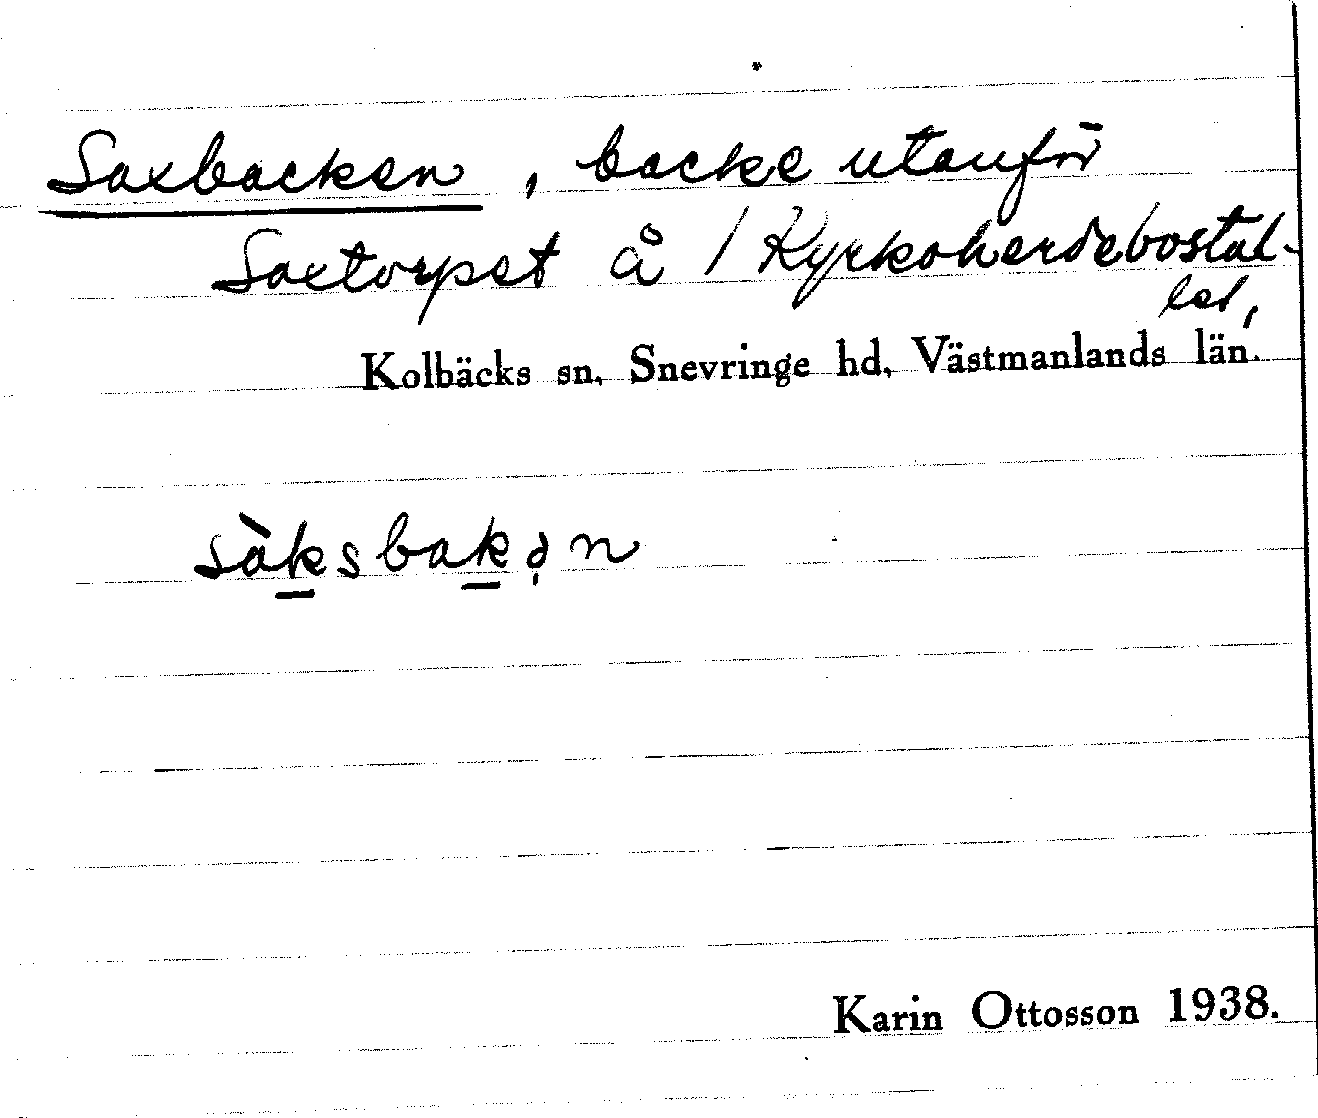 Saxbacken, backe utanför
Saxtorpet å / Kyrkoherdebostal-
let,
Kolbäcks sn, Snevringe hd, Västmanlands län.
sàksbakən
Karin Ottosson 1938.